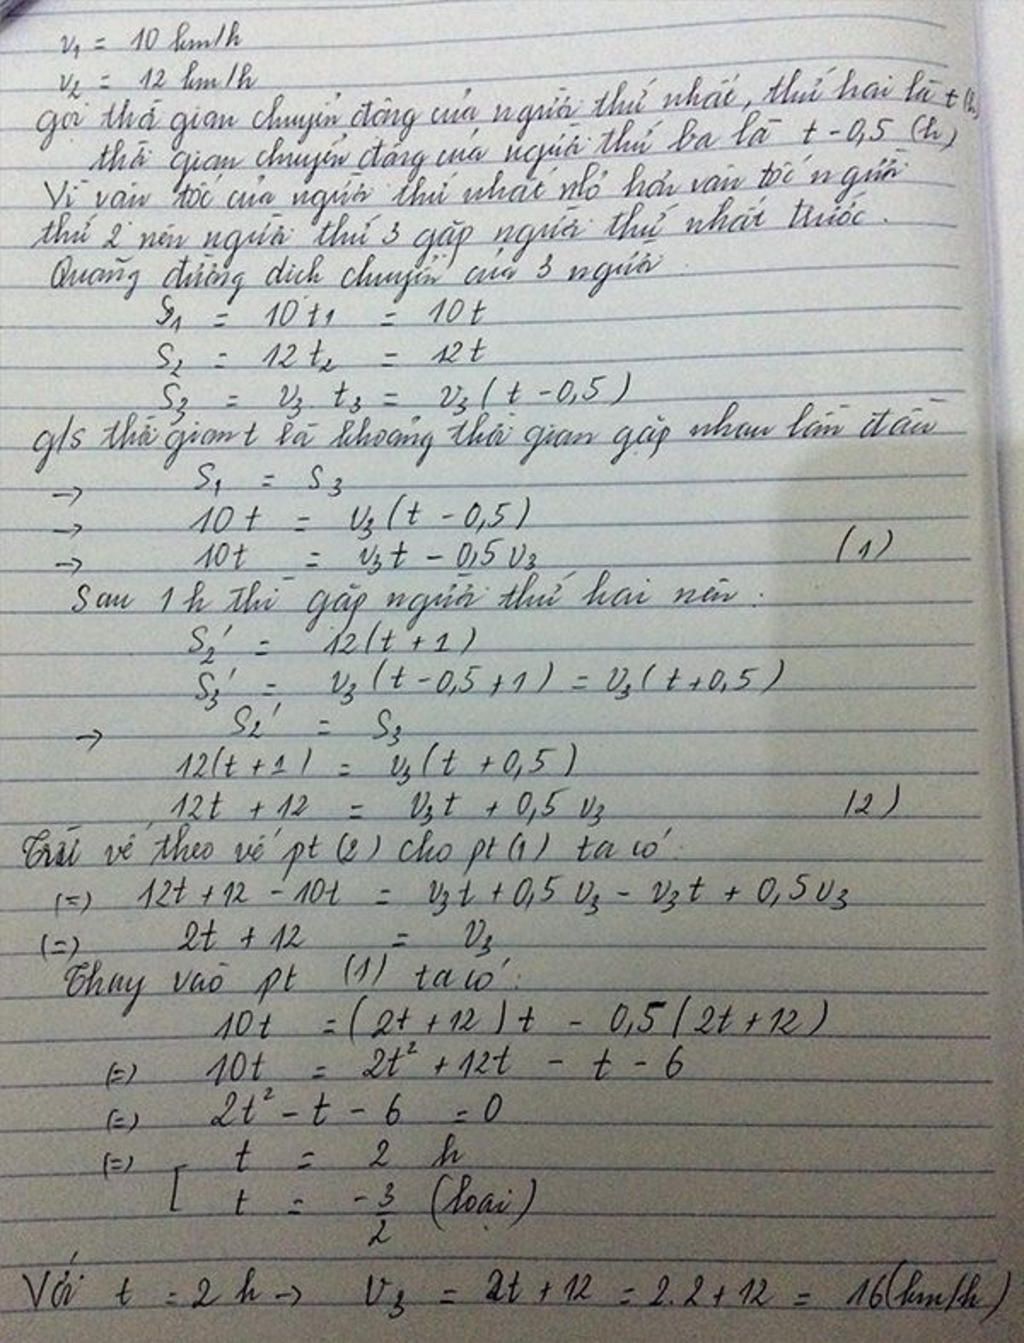 v₁ = 10 km/h
v₂ = 12 km/h
gọi thời gian chuyển động của người thứ nhất, thứ hai là t (h)
thời gian chuyển động của người thứ ba là t - 0,5 (h)
Vì vận tốc của người thứ nhất nhỏ hơn vận tốc người
thứ 2 nên người thứ 3 gặp người thứ nhất trước.
Quãng đường dịch chuyển của 3 người
S₁ = 10t₁ = 10t
S₂ = 12t₂ = 12t
S₃ = v₃ . t₃ = v₃ (t - 0,5)
g/s thời gian t là khoảng thời gian gặp nhau lần đầu
→ S₁ = S₃
→ 10t = v₃ (t - 0,5)
→ 10t = v₃t - 0,5 v₃ (1)
Sau 1h thì gặp người thứ hai nên :
S₂' = 12(t + 1)
S₃' = v₃ (t - 0,5 + 1) = v₃ (t + 0,5)
→ S₂' = S₃
12(t + 1) = v₃ (t + 0,5)
12t + 12 = v₃t + 0,5 v₃ (2)
Trừ vế theo vế pt (2) cho pt (1) ta có :
(=) 12t + 12 - 10t = v₃t + 0,5 v₃ - v₃t + 0,5 v₃
(=) 2t + 12 = v₃
Thay vào pt (1) ta có :
10t = (2t + 12) t - 0,5 (2t + 12)
(=) 10t = 2t² + 12t - t - 6
(=) 2t² - t - 6 = 0
(=) [ t = 2 h
t = -3/2 (loại)
Với t = 2 h → v₃ = 2t + 12 = 2.2 + 12 = 16 (km/h)